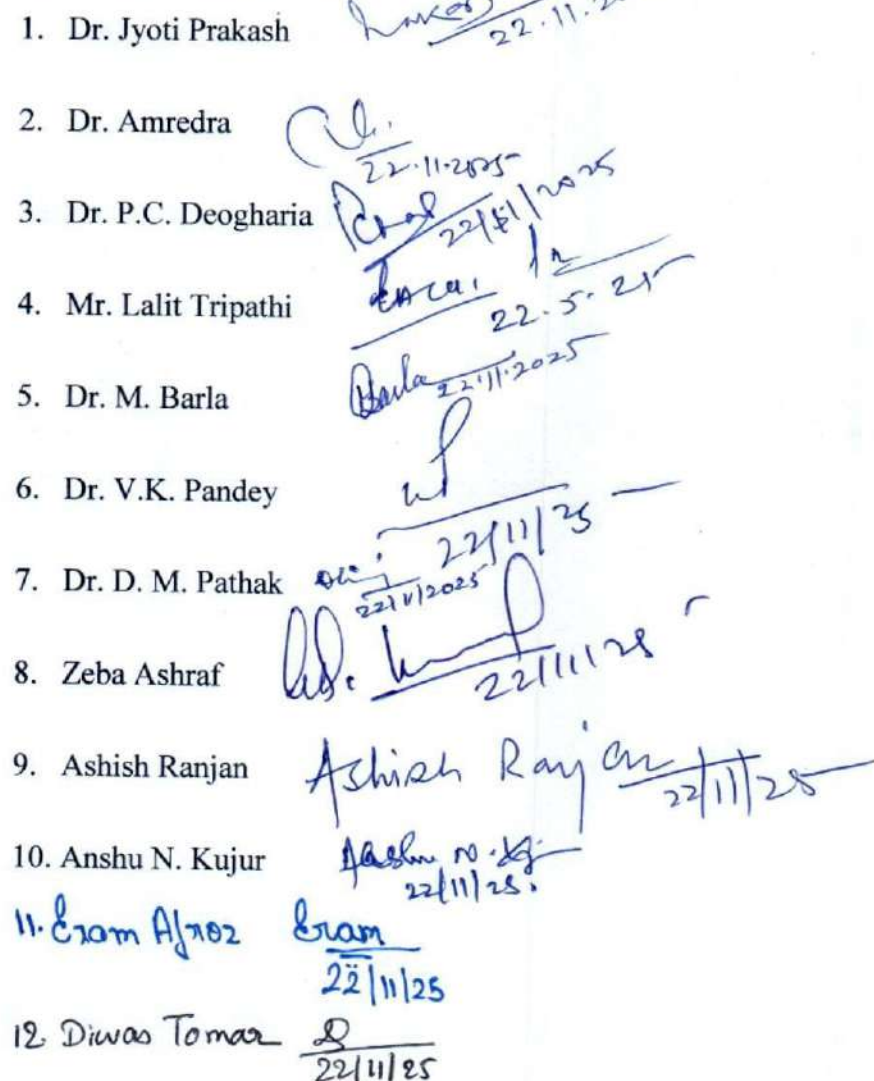 1. Dr. Jyoti Prakash
22.11.2
2. Dr. Amredra
22.11.2025
3. Dr. P.C. Deogharia
22/11/2025
4. Mr. Lalit Tripathi
22.5.25
5. Dr. M. Barla Barla 22.11.2025
6. Dr. V.K. Pandey
22/11/25
7. Dr. D. M. Pathak
22/11/2025
8. Zeba Ashraf
22/11/25
9. Ashish Ranjan Ashish Ranjan
22/11/25
10. Anshu N. Kujur
22/11/25.
11. Eram Afroz Eram
22/11/25
12. Diwas Tomar
22/11/25